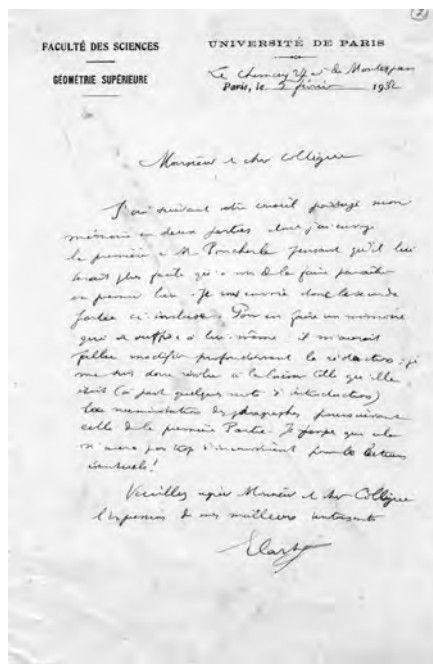 FACULTÉ DES SCIENCES
GÉOMÉTRIE SUPÉRIEURE
UNIVERSITÉ DE PARIS
Le Chesnay
Paris, le 5 février 1932
Monsieur et cher Collègue
J'ai suivant votre conseil partagé mon
mémoire en deux parties dont j'ai envoyé
la première à M. Pincherle pensant qu'il lui
serait plus facile qu'à vous de la faire paraître
en premier lieu. Je vous envoie donc la seconde
partie ci-incluse. Pour en faire un mémoire
qui se suffise à lui-même il m'aurait
fallu modifier profondément la rédaction ; je
me suis donc résolu à la laisser telle qu'elle
était (à part quelques mots d'introduction)
la numérotation des paragraphes poursuivant
celle de la première Partie. Je pense que cela
n'aura pas trop d'inconvénient pour les lecteurs
éventuels !
Veuillez agréer Monsieur et cher Collègue
l'expression de mes meilleurs sentiments
E Cartan